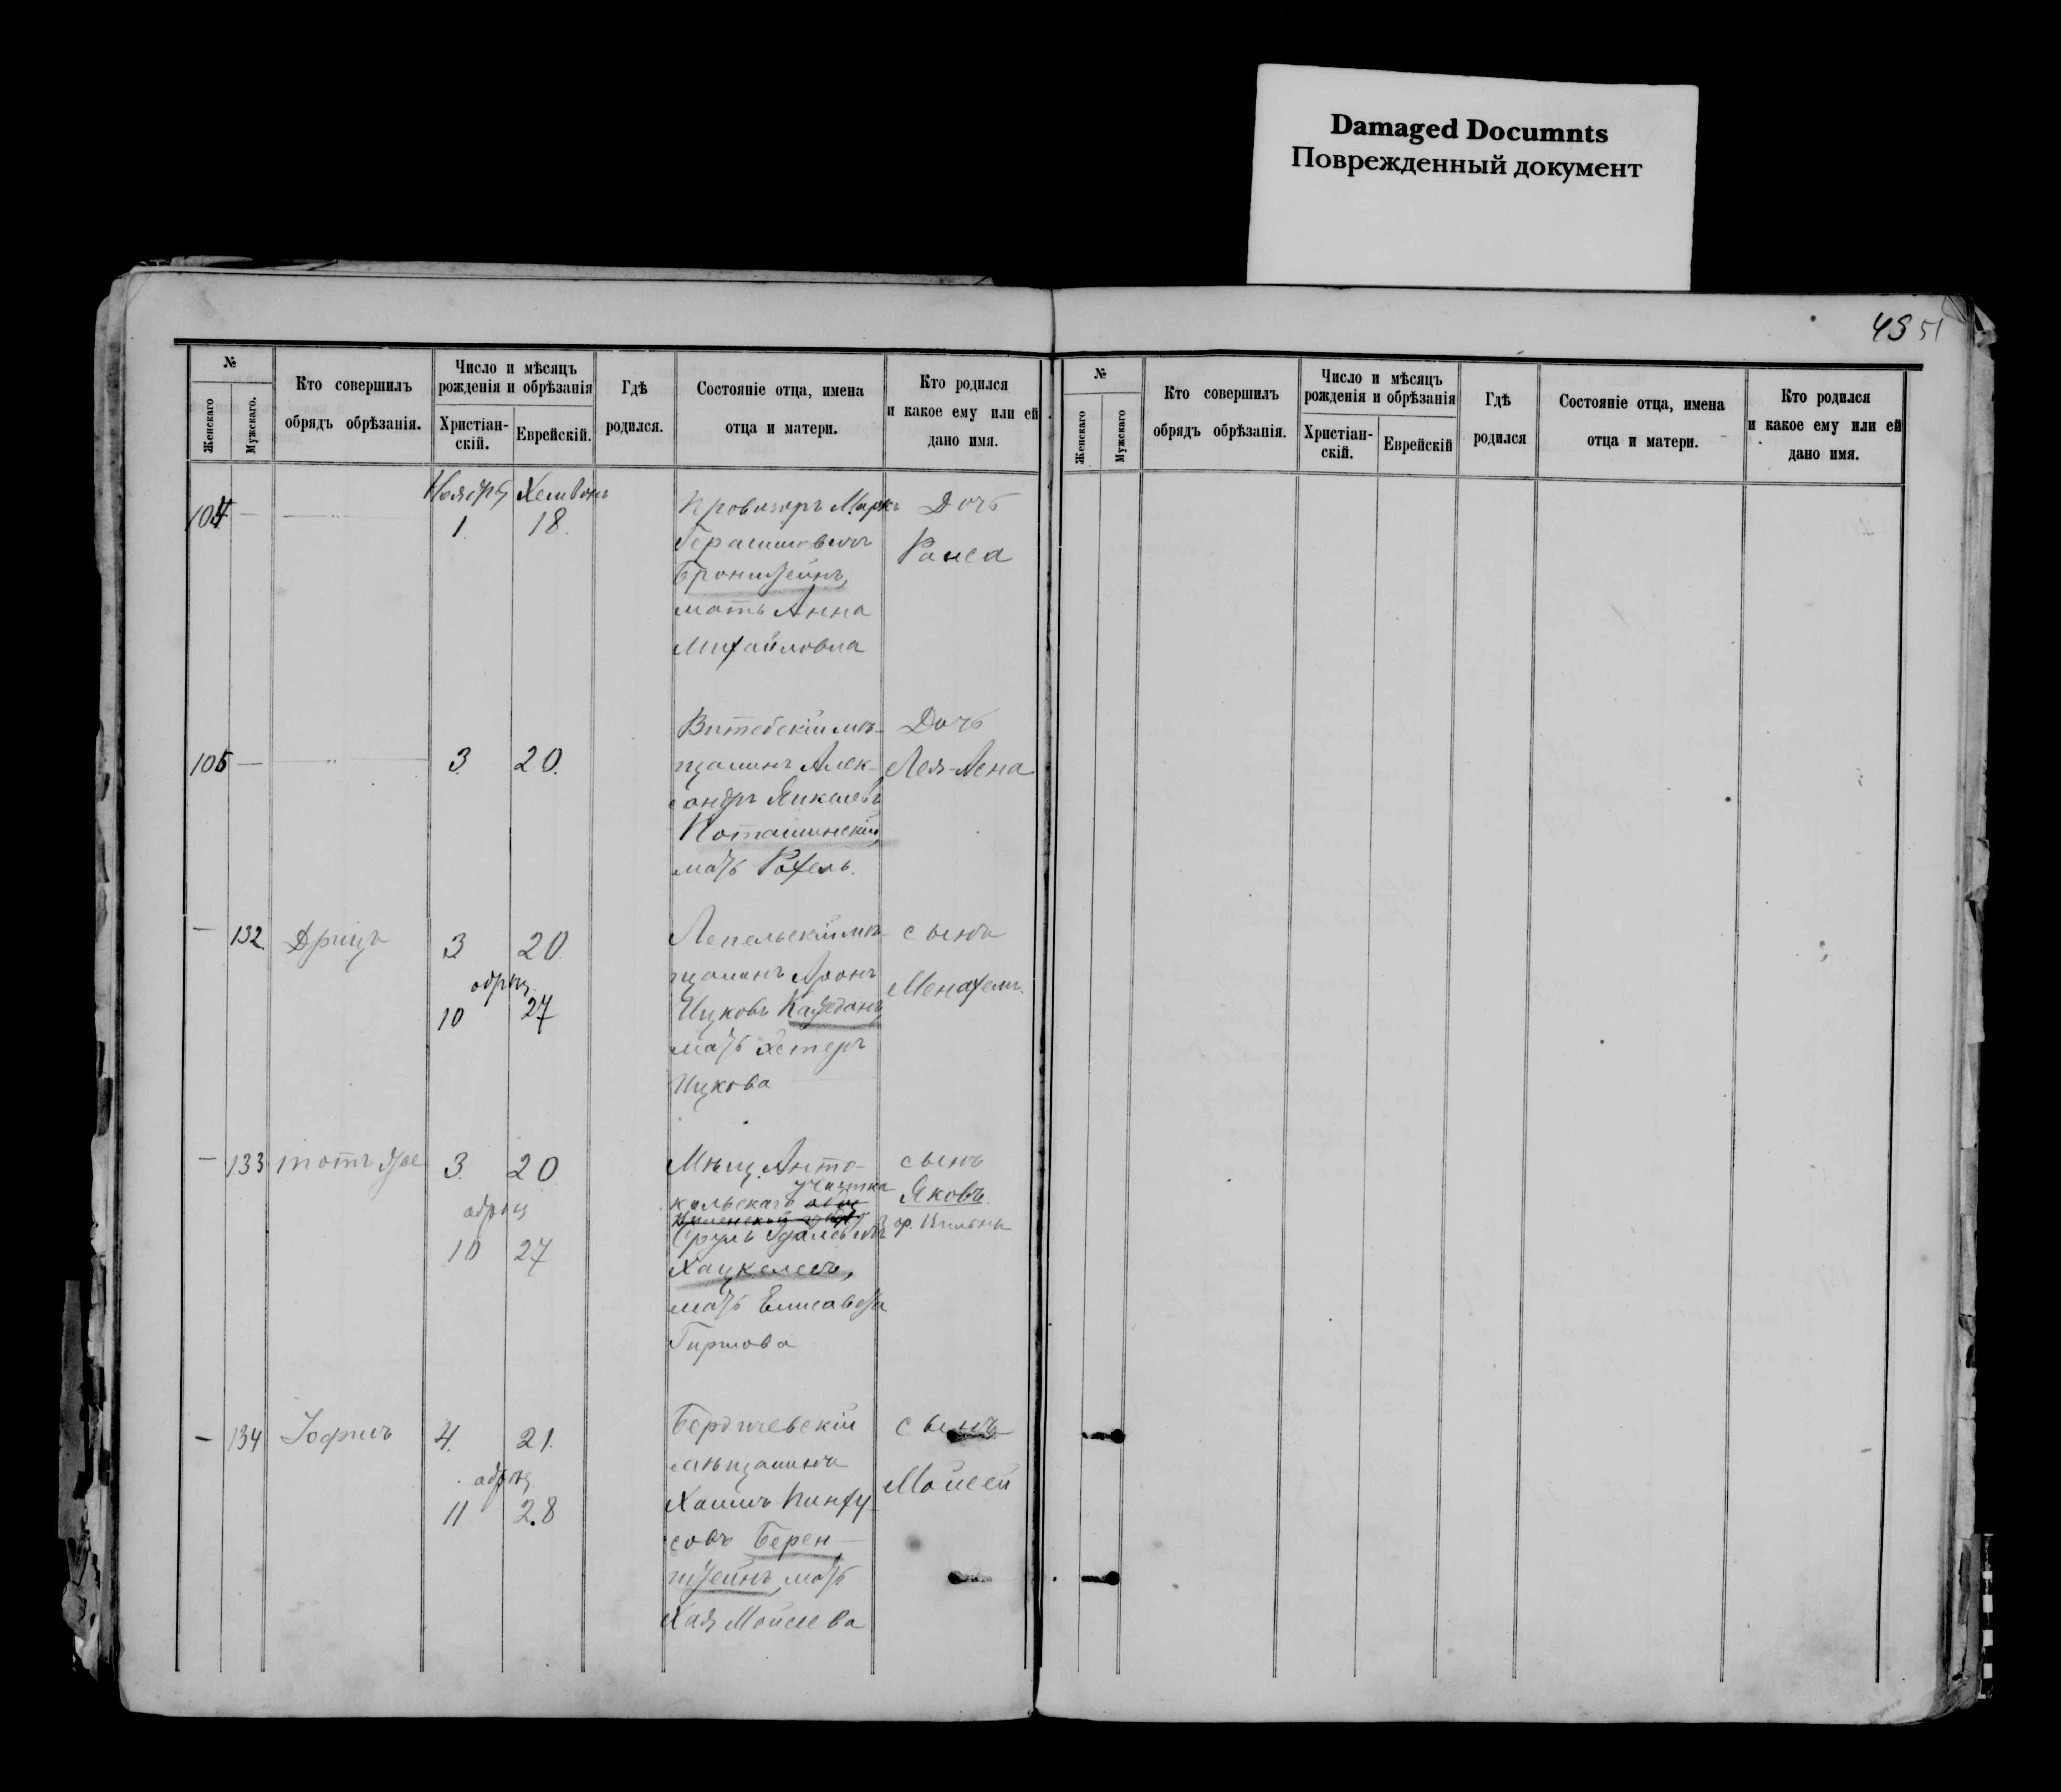 Damaged Documnts
Поврежденный документ
4951
№
Женскаго
Мужскаго.
Кто совершилъ
обрядъ обрѣзанія.
Число и мѣсяцъ
рожденія и обрѣзанія
Христіан-
скій.
Еврейскій.
Гдѣ
родился.
Состояніе отца, имена
отца и матери.
Кто родился
и какое ему или ей
дано имя.
Ноября Хешванъ
104 — —
1. 18.
Провизоръ Маркъ
Герасимовичъ
Бронштейнъ,
мать Анна
Михайловна
Дочь
Раиса
105 — — " —
3. 20.
Витебскій мѣ-
щанинъ Алек-
сандръ Янкелевъ
Поташинскій,
мать Рахель.
Дочь
Лея-Лена
— 132 Дрицъ
3 20.
обрѣз.
10 27
Лепельскій мѣ-
щанинъ Аронъ
Ицковъ
мать Эстеръ
Ицкова
сынъ
Менахемъ.
— 133 тотъ же
3. 20
обрѣз
10 27
Мѣщ. Анто-
участка
кольскаго
Хацкелевъ,
мать Елисавета
Гиршова
сынъ
Яковъ.
гр. Вильна
— 134
4. 21.
обрѣз.
11 28
Бердичевскій
мѣщанинъ
Хаимъ Пинху-
совъ Берен-
штейнъ, мать
Хая Моисеева
сынъ
Моисей
№
Женскаго
Мужскаго
Кто совершилъ
обрядъ обрѣзанія.
Число и мѣсяцъ
рожденія и обрѣзанія
Христіан-
скій.
Еврейскій
Гдѣ
родился
Состояніе отца, имена
отца и матери.
Кто родился
и какое ему или ей
дано имя.